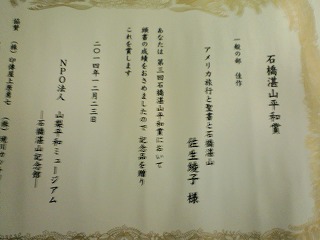 石橋湛山平和賞
一般の部 佳作
アメリカ旅行と聖書と石橋湛山
様
あなたは 第三回石橋湛山平和賞において
頭書の成績をおさめましたので 記念品を贈り
これを賞します
二〇一四年一二月二三日
NPO法人 山梨平和ミュージアム
―石橋湛山記念館―
協賛 (株)印傳屋上原勇七